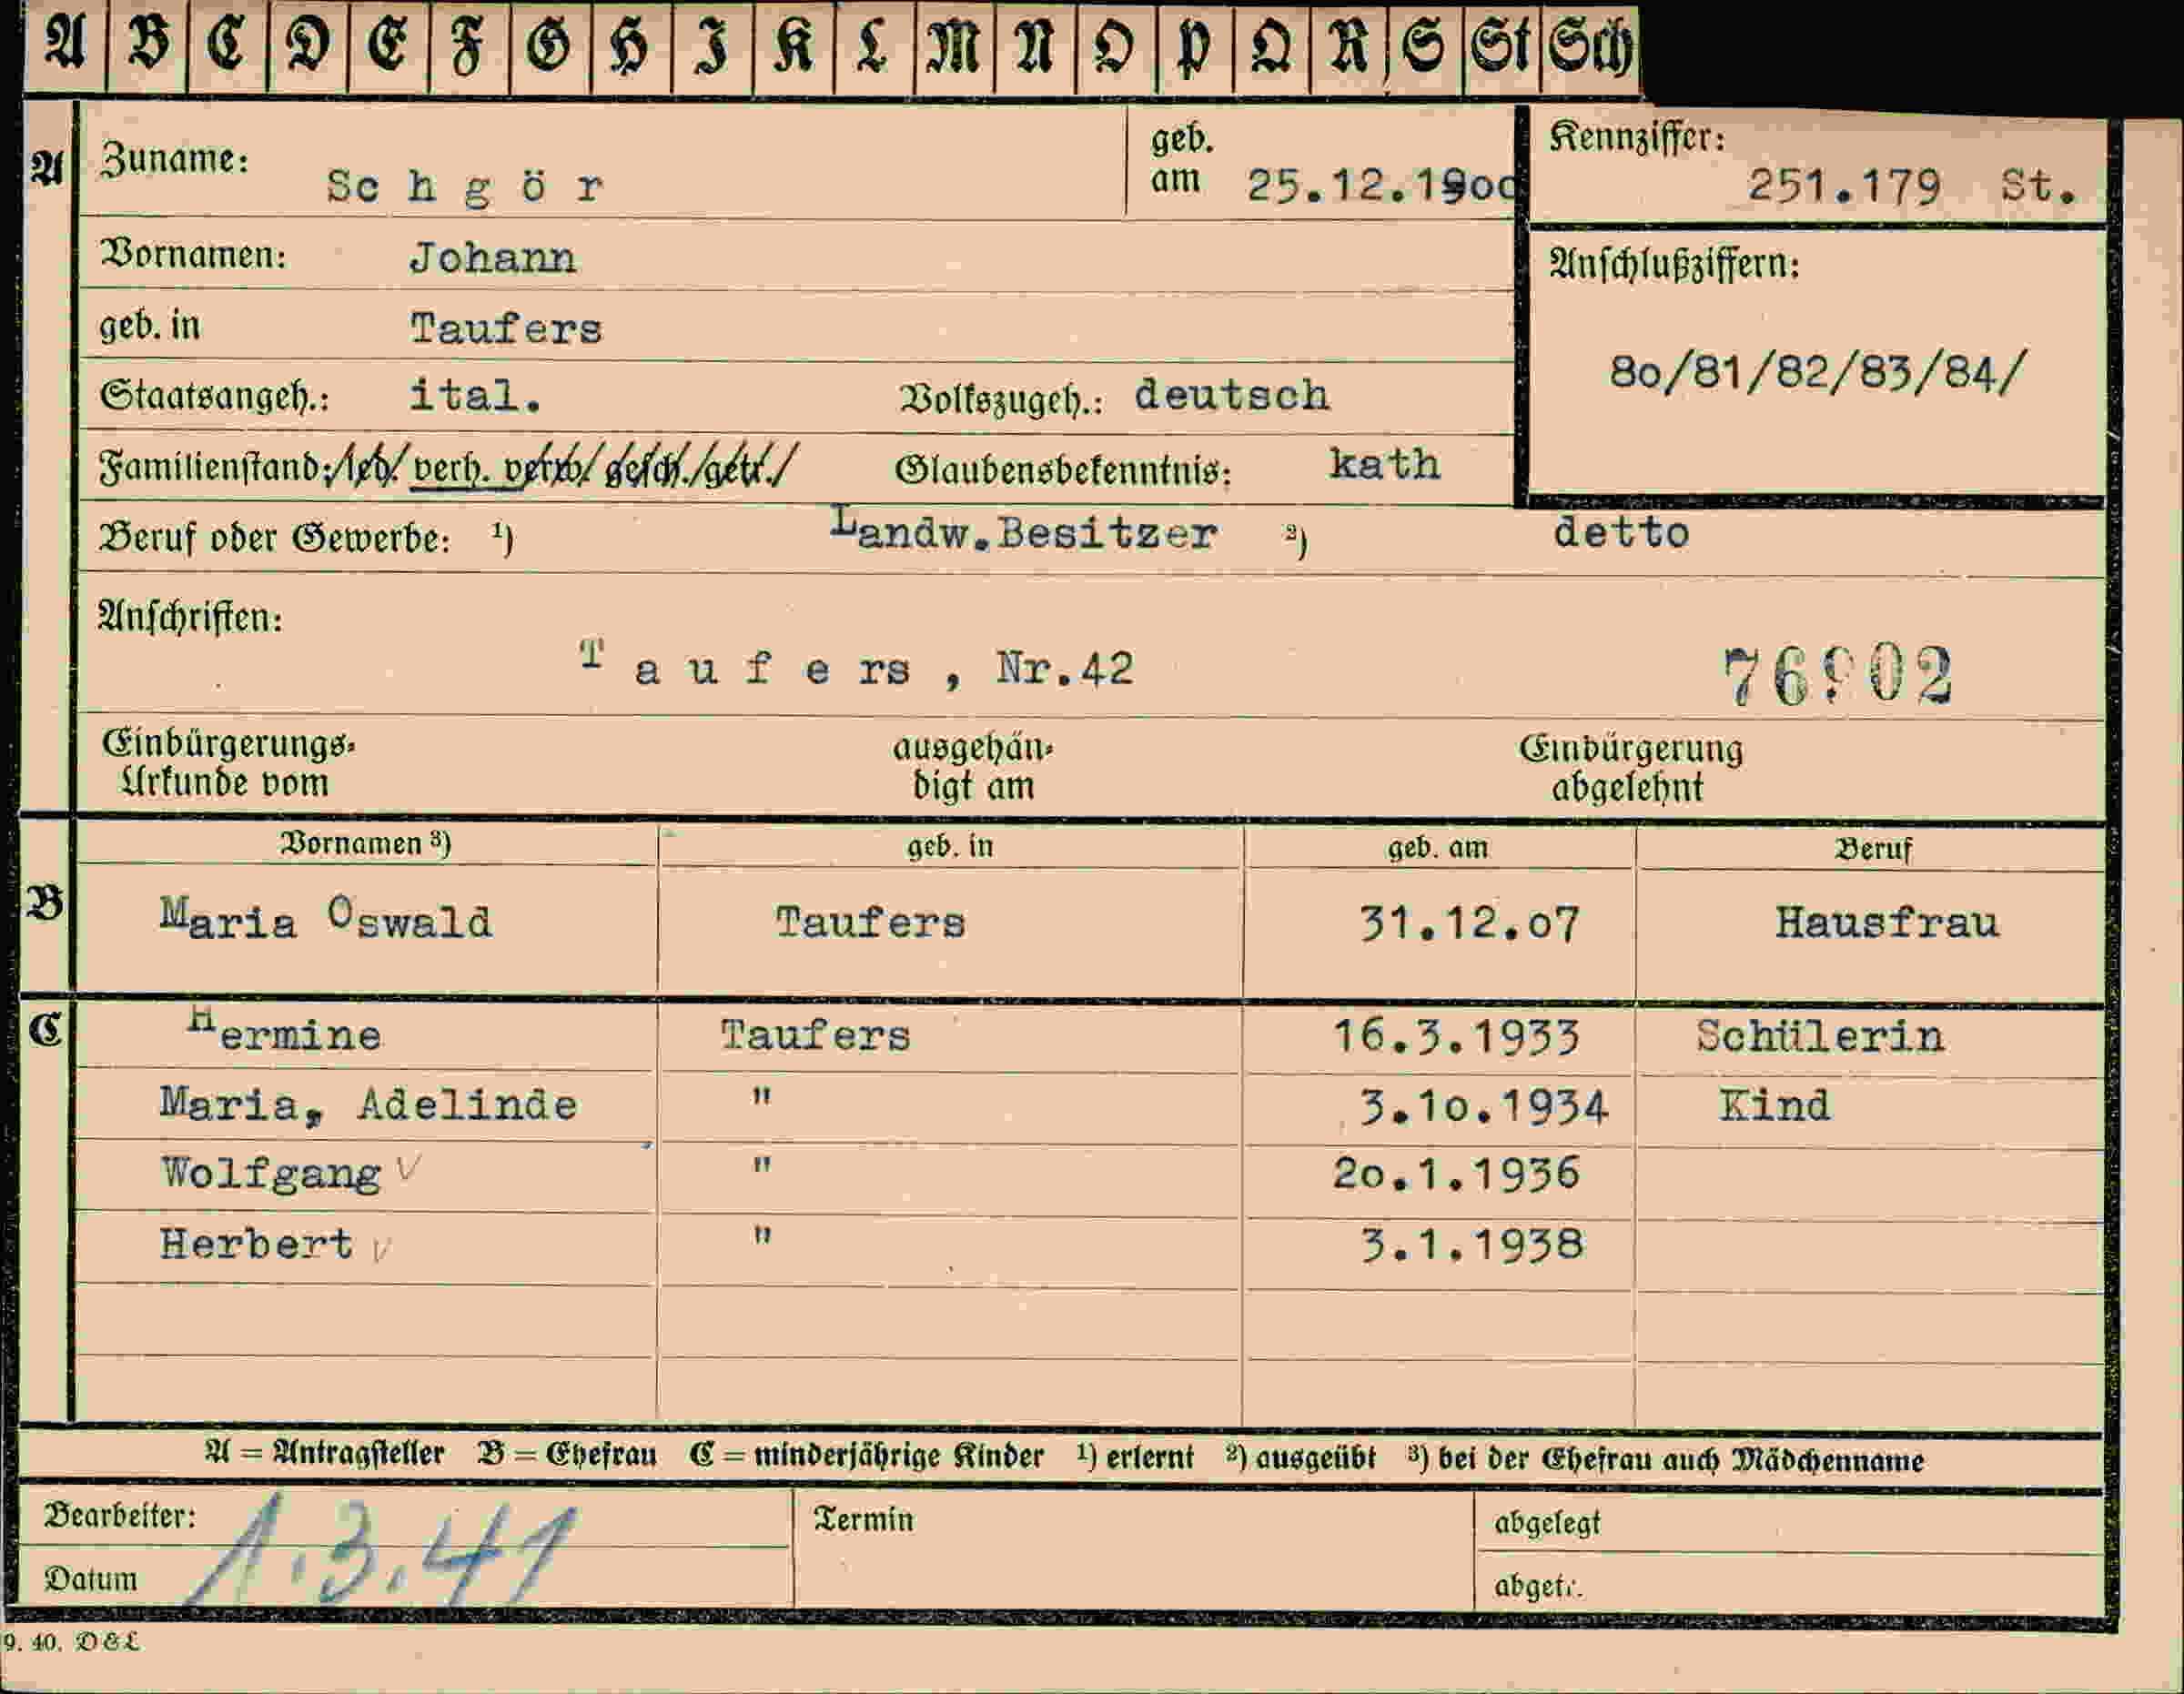 A B C D E F G H I K L M N O P Q R S St Sch
A
Zuname: Schgör geb. am 25.12.19oo
Kennziffer: 251.179 St.
Vornamen: Johann
Anschlußziffern:
80/81/82/83/84/
geb. in Taufers
Staatsangeh.: ital. Volkszugeh.: deutsch
Familienstand: led. verh. verw. gesch. getr. Glaubensbekenntnis: kath
Beruf oder Gewerbe: 1) Landw.Besitzer 2) detto
Anschriften:
Taufers, Nr.42
Einbürgerungs-Urkunde vom ausgehän-digt am Einbürgerung abgelehnt
Vornamen 3) geb. in geb. am Beruf
B
Maria Oswald Taufers 31.12.o7 Hausfrau
C
Hermine Taufers 16.3.1933 Schülerin
Maria, Adelinde " 3.1o.1934 Kind
Wolfgang " 2o.1.1936
Herbert " 3.1.1938
A = Antragsteller B = Ehefrau C = minderjährige Kinder 1) erlernt 2) ausgeübt 3) bei der Ehefrau auch Mädchenname
Bearbeiter: Termin abgelegt
1.3.41
Datum abgetr.
9. 40. D&L